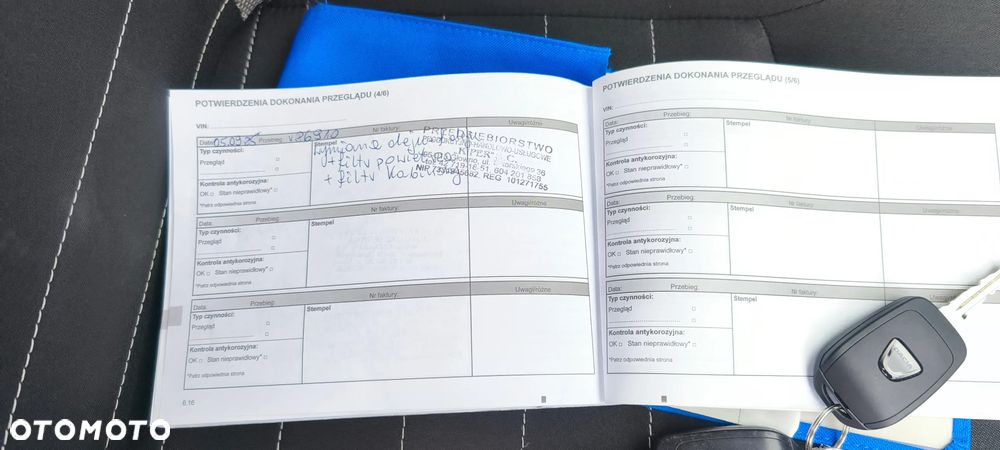 POTWIERDZENIA DOKONANIA PRZEGLĄDU (4/6)
VIN:
Data: Przebieg: Nr faktury: Uwagi/różne
Typ czynności: Stempel
Przegląd
Kontrola antykorozyjna:
OK Stan nieprawidłowy*
*Patrz odpowiednia strona
Wymiana oleju
+ filtr powietrza
+ filtr kabinowy
PRZEDSIĘBIORSTWO
REG 101271755
Data: Przebieg: Nr faktury: Uwagi/różne
Typ czynności: Stempel
Przegląd
Kontrola antykorozyjna:
OK Stan nieprawidłowy*
*Patrz odpowiednia strona
Data: Przebieg: Nr faktury: Uwagi/różne
Typ czynności: Stempel
Przegląd
Kontrola antykorozyjna:
OK Stan nieprawidłowy*
*Patrz odpowiednia strona
6.16
POTWIERDZENIA DOKONANIA PRZEGLĄDU (5/6)
VIN:
Data: Przebieg: Nr faktury: Uwagi/różne
Typ czynności: Stempel
Przegląd
Kontrola antykorozyjna:
OK Stan nieprawidłowy*
*Patrz odpowiednia strona
Data: Przebieg: Nr faktury: Uwagi/różne
Typ czynności: Stempel
Przegląd
Kontrola antykorozyjna:
OK Stan nieprawidłowy*
*Patrz odpowiednia strona
Data: Przebieg: Nr faktury:
Typ czynności: Stempel
Przegląd
Kontrola antykorozyjna:
OK Stan nieprawidłowy*
*Patrz odpowiednia strona
OTOMOTO